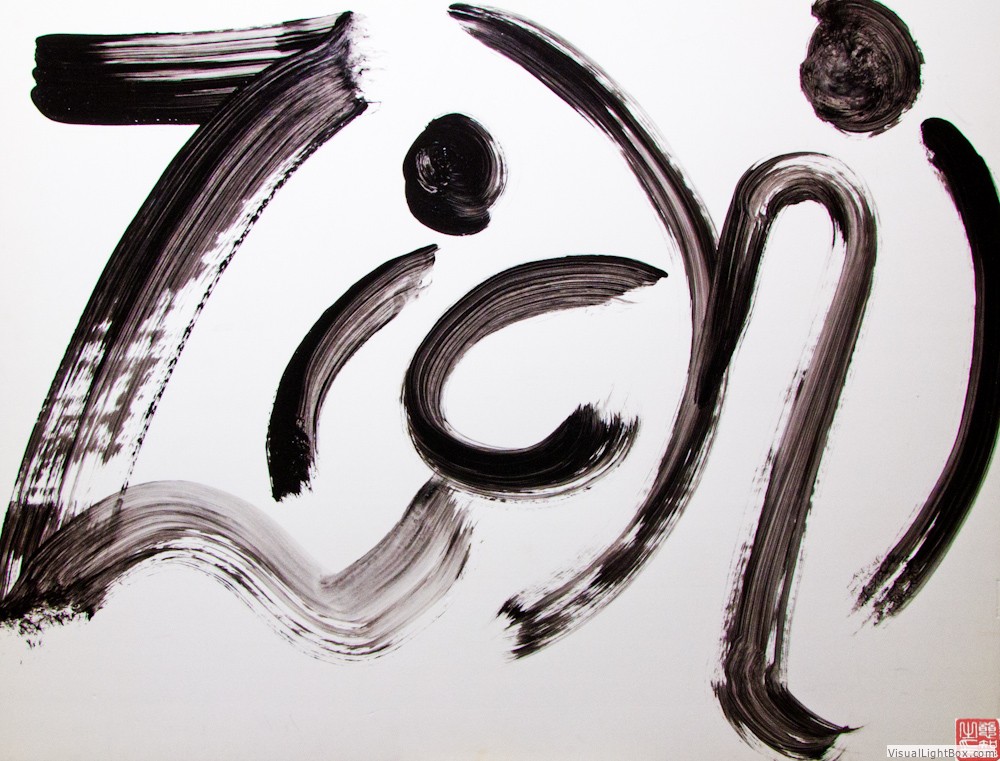 Zichi
VisualLightBox.com